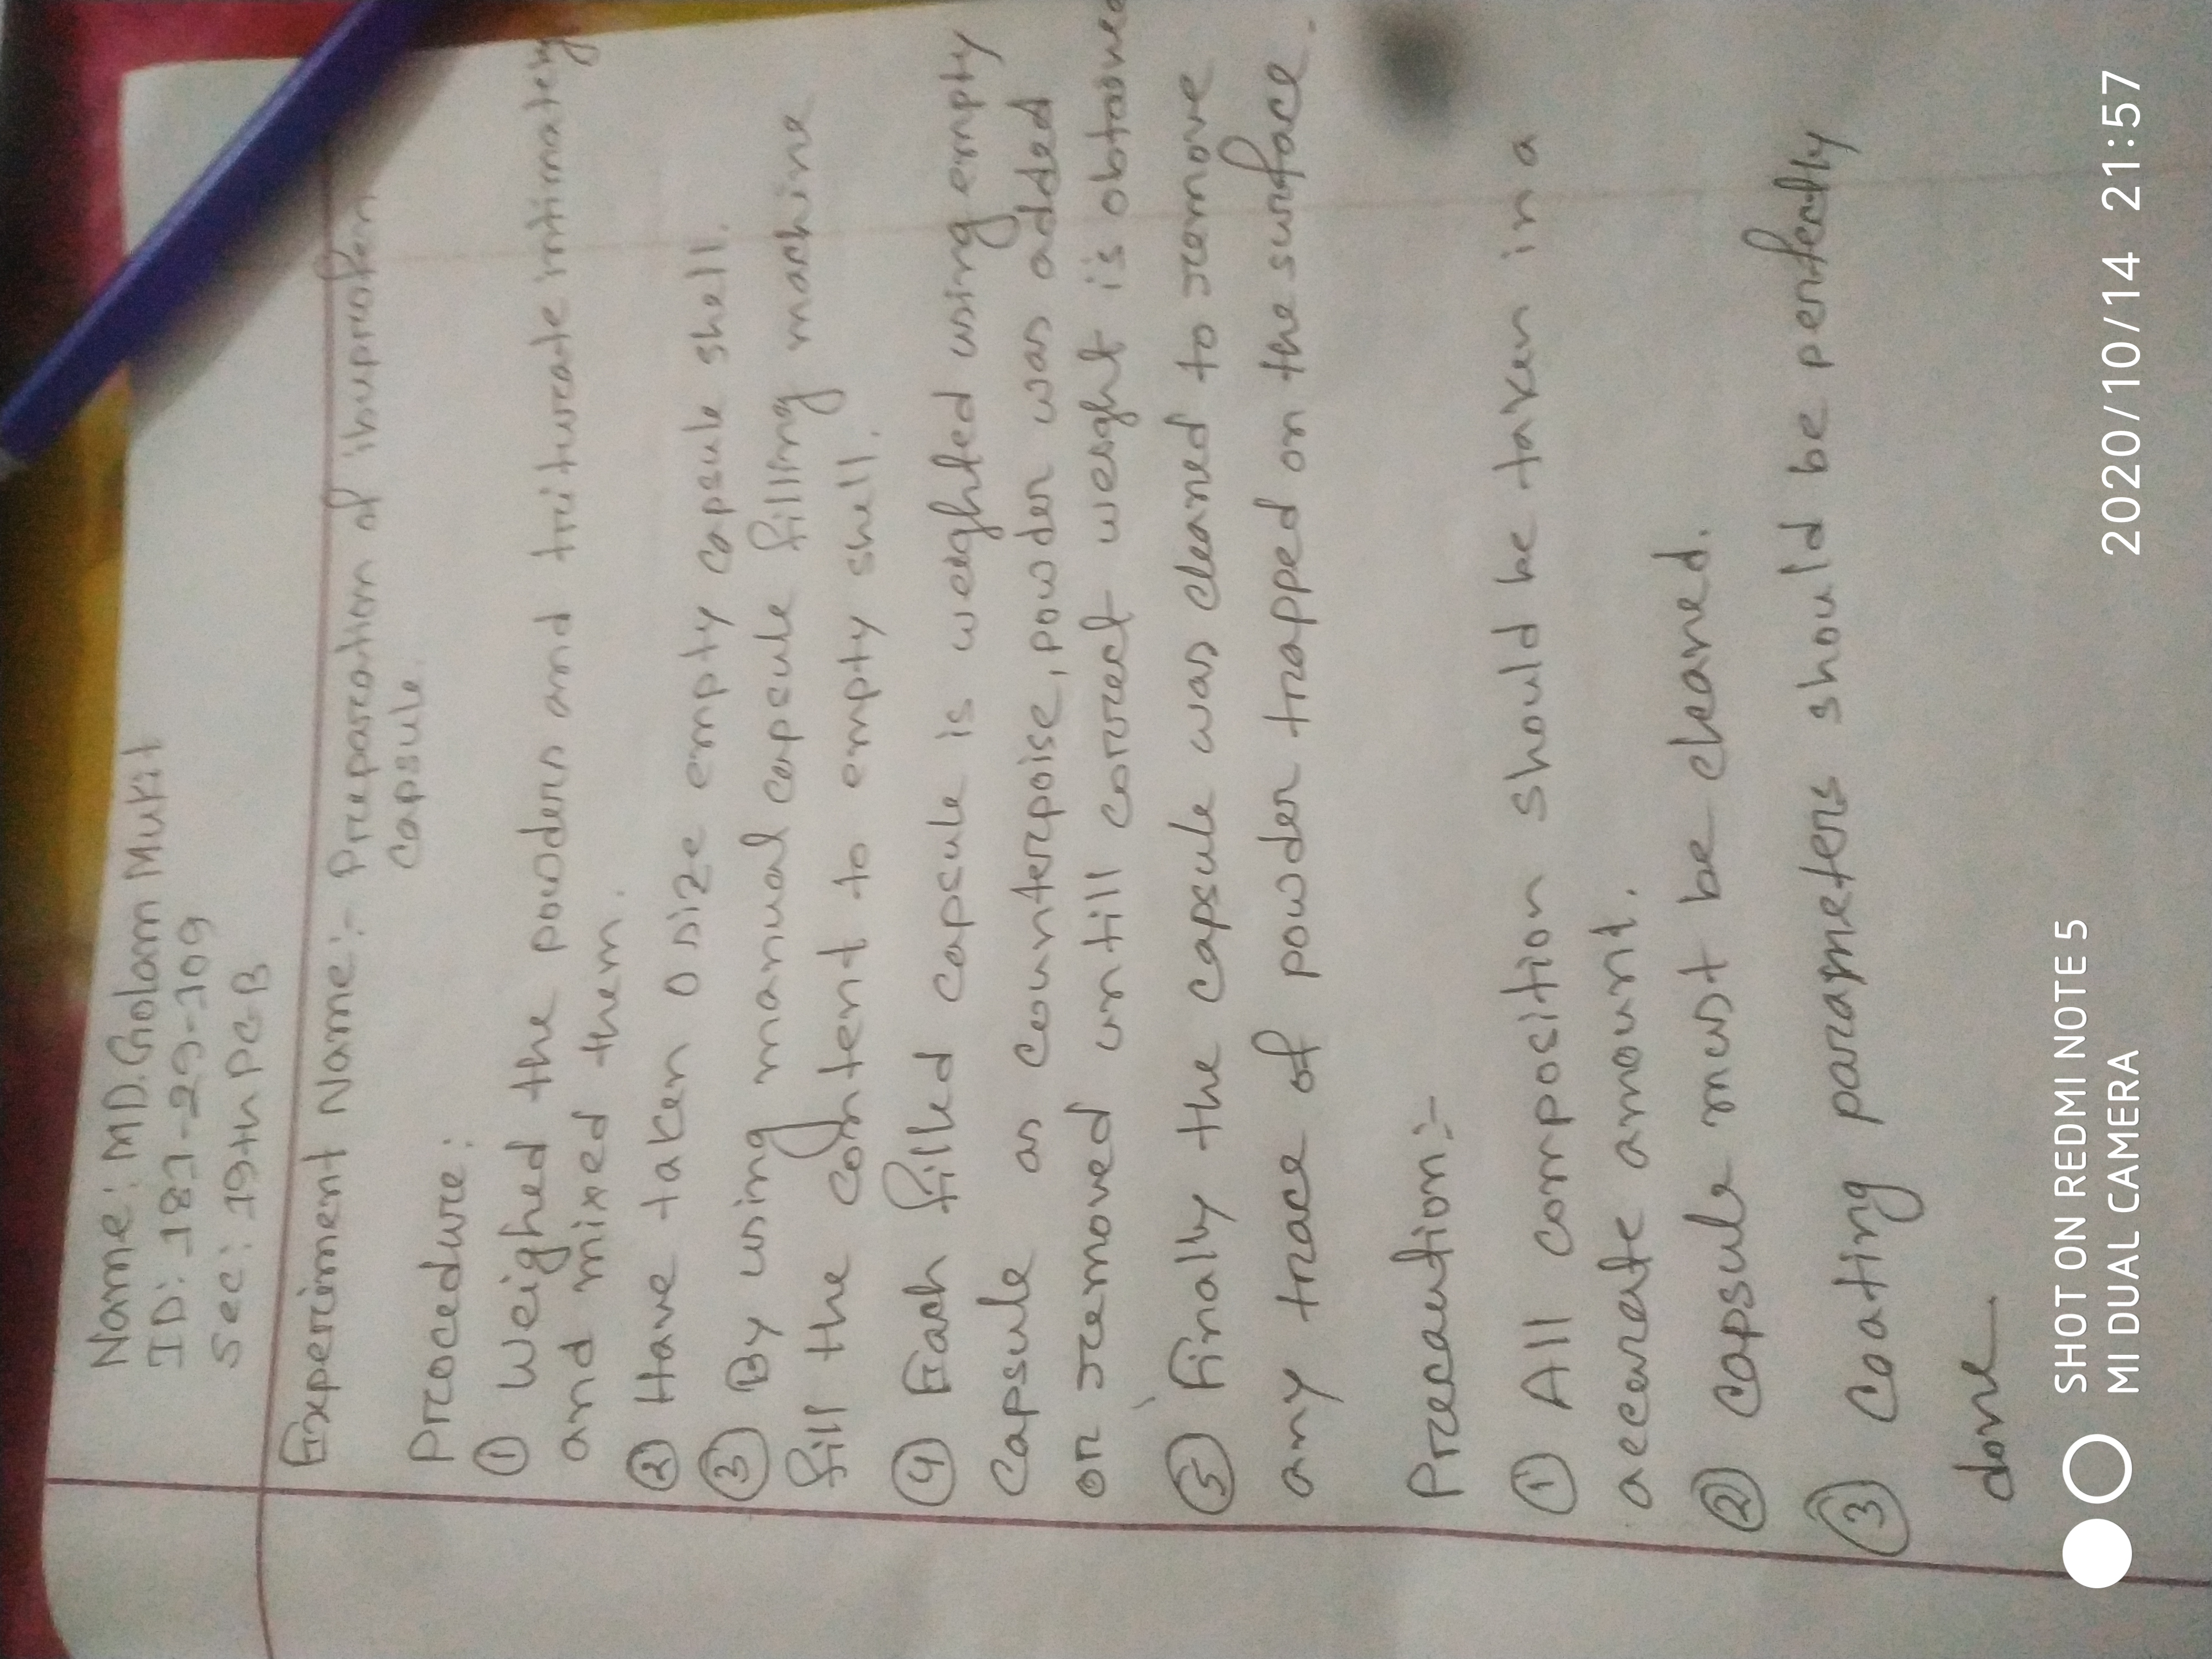 Name: MD. Golam Mukit
ID: 181-29-109
Sec: 19th PC-B
Experiment Name:- Preparation of ibuprofen
capsule.
Procedure:
① Weighed the powders and triturate intimately
and mixed them.
② Have taken 0 size empty capsule shell.
③ By using manual capsule filling machine
fill the content to empty shell.
④ Each filled capsule is weighted using empty
capsule as counterpoise, powder was added
or removed untill correct weight is obtained
⑤ Finally the capsule was cleaned to remove
any trace of powder trapped on the surface.
Precaution:-
① All composition should be taken in a
accurate amount.
② capsule must be cleaned.
③ Coating parameters should be perfectly
done.
SHOT ON REDMI NOTE 5
MI DUAL CAMERA
2020/10/14 21:57